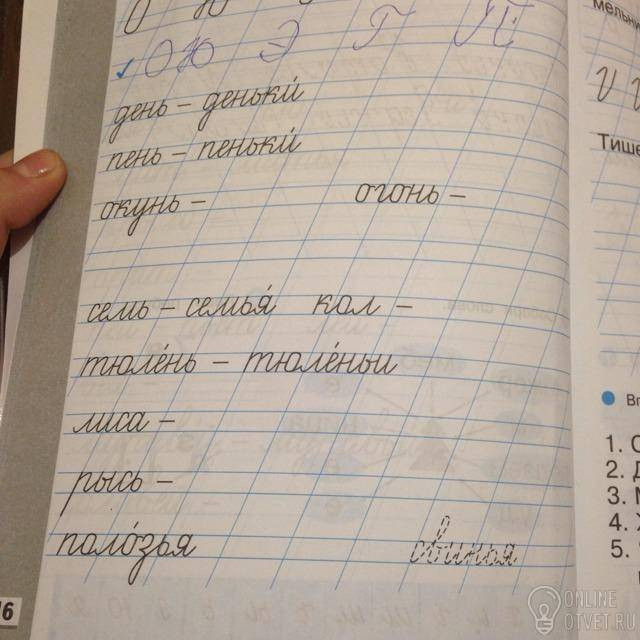 О Ю Э Г П
день – деньки́
пень – пеньки́
окунь – огонь –
семь – семья́ кол –
тюле́нь – тюле́ньи
лиса –
рысь –
поло́зья свинья
16
мельни
Тише
Вп
1. С
2. Д
3. М
4. У
5.
ONLINE
OTVET.RU